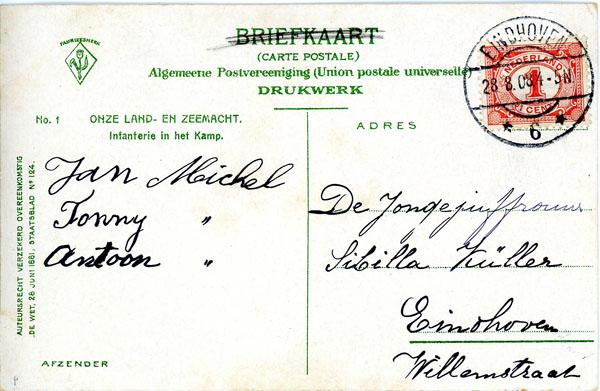 FABRIEKSMERK
BRIEFKAART
(CARTE POSTALE)
Algemeene Postvereeniging (Union postale universelle)
DRUKWERK
EINDHOVEN
28 8.08 4-5N
6
NEDERLAND
1
CENT
No. 1 ONZE LAND- EN ZEEMACHT.
Infanterie in het Kamp.
ADRES
Jan Michel
Tonny "
Antoon "
De Jongejuffrouw
Sibilla Küller
Eindhoven
Willemstraat
AUTEURSRECHT VERZEKERD OVEREENKOMSTIG
DE WET, 28 JUNI 1881, STAATSBLAD No 124.
AFZENDER